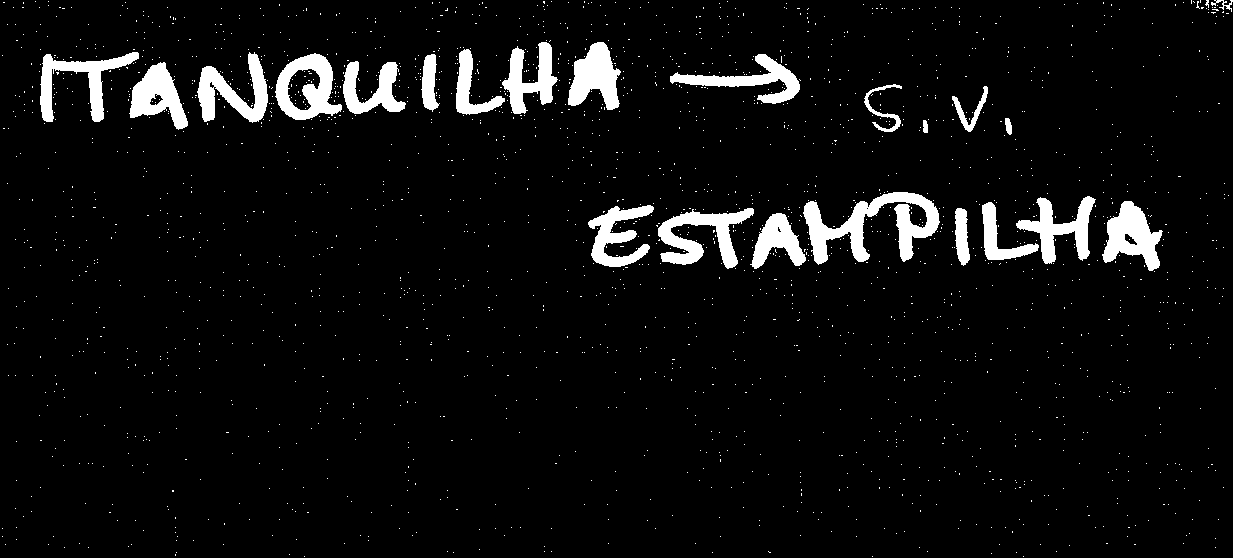 ITANQUILHA → S.V.
ESTAMPILHA